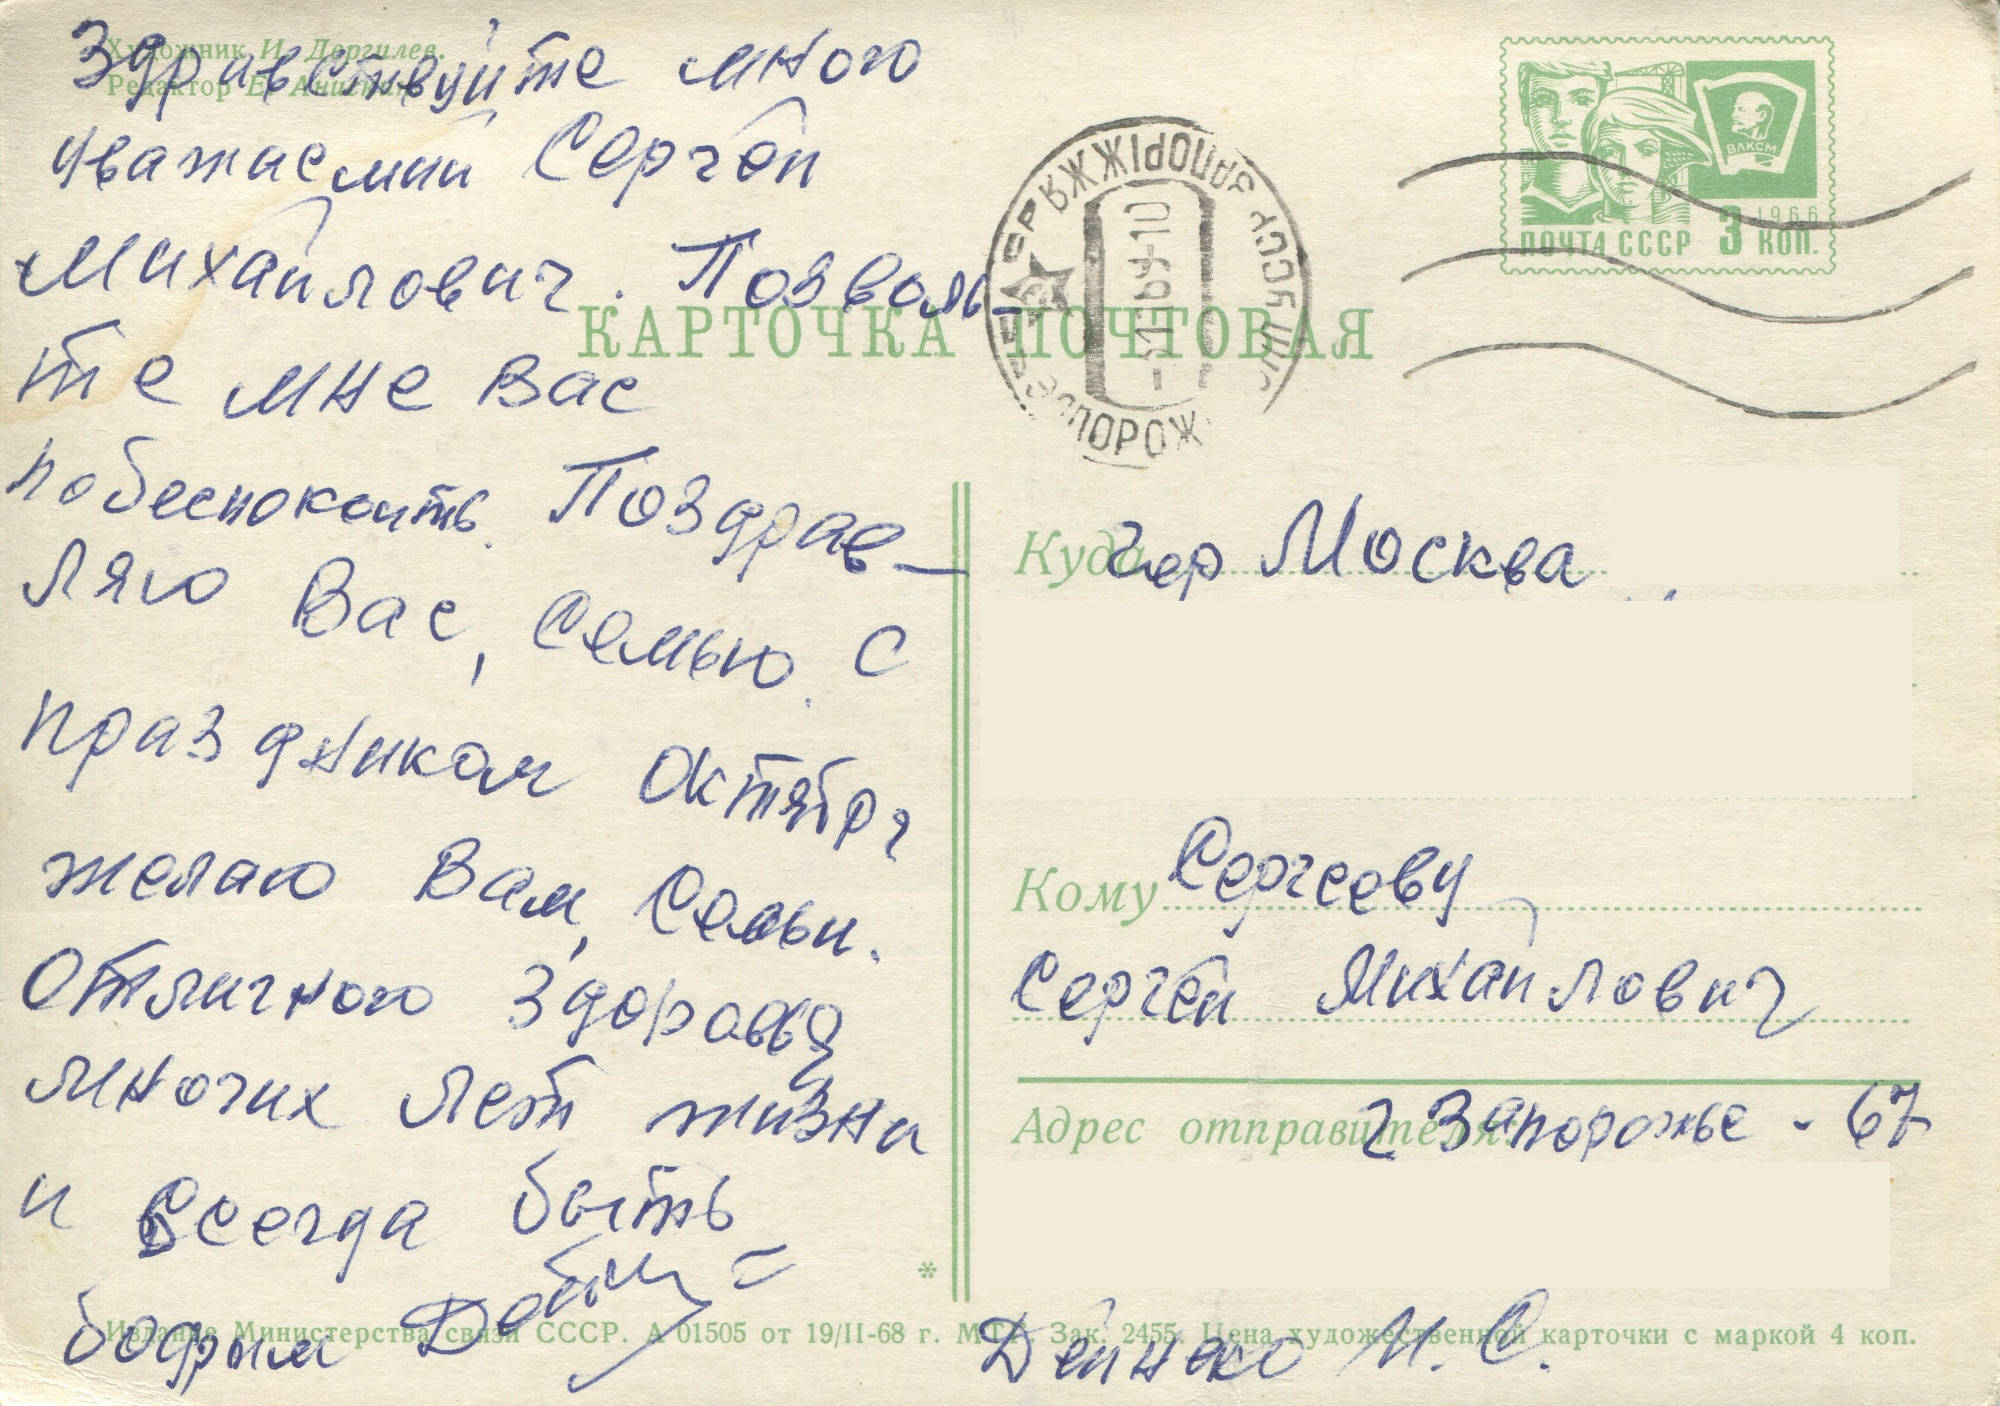 Художник И. Дергилев.
Редактор Е.
Здравствуйте много
уважаемий Сергей
Михайлович. Позволь-
те мне Вас
побеспокоить. Поздрав-
ляю Вас, Семью. С
праздником октября
желаю Вам, Семьи.
Отличного здоровья
многих лет жизни
и всегда быть
бодрым
КАРТОЧКА ПОЧТОВАЯ
ЗАПОРІЖЖЯ УССР
ЗАПОРОЖ
ВЛКСМ
1966
ПОЧТА СССР 3 КОП.
Куда гор Москва
Кому Сергееву
Сергей Михайлович
Адрес отправителя: г Запорожье - 67
Дейнеко И. С.
Издание Министерства связи СССР. А 01505 от 19/II-68 г. МПФ Зак. 2455. Цена художественной карточки с маркой 4 коп.